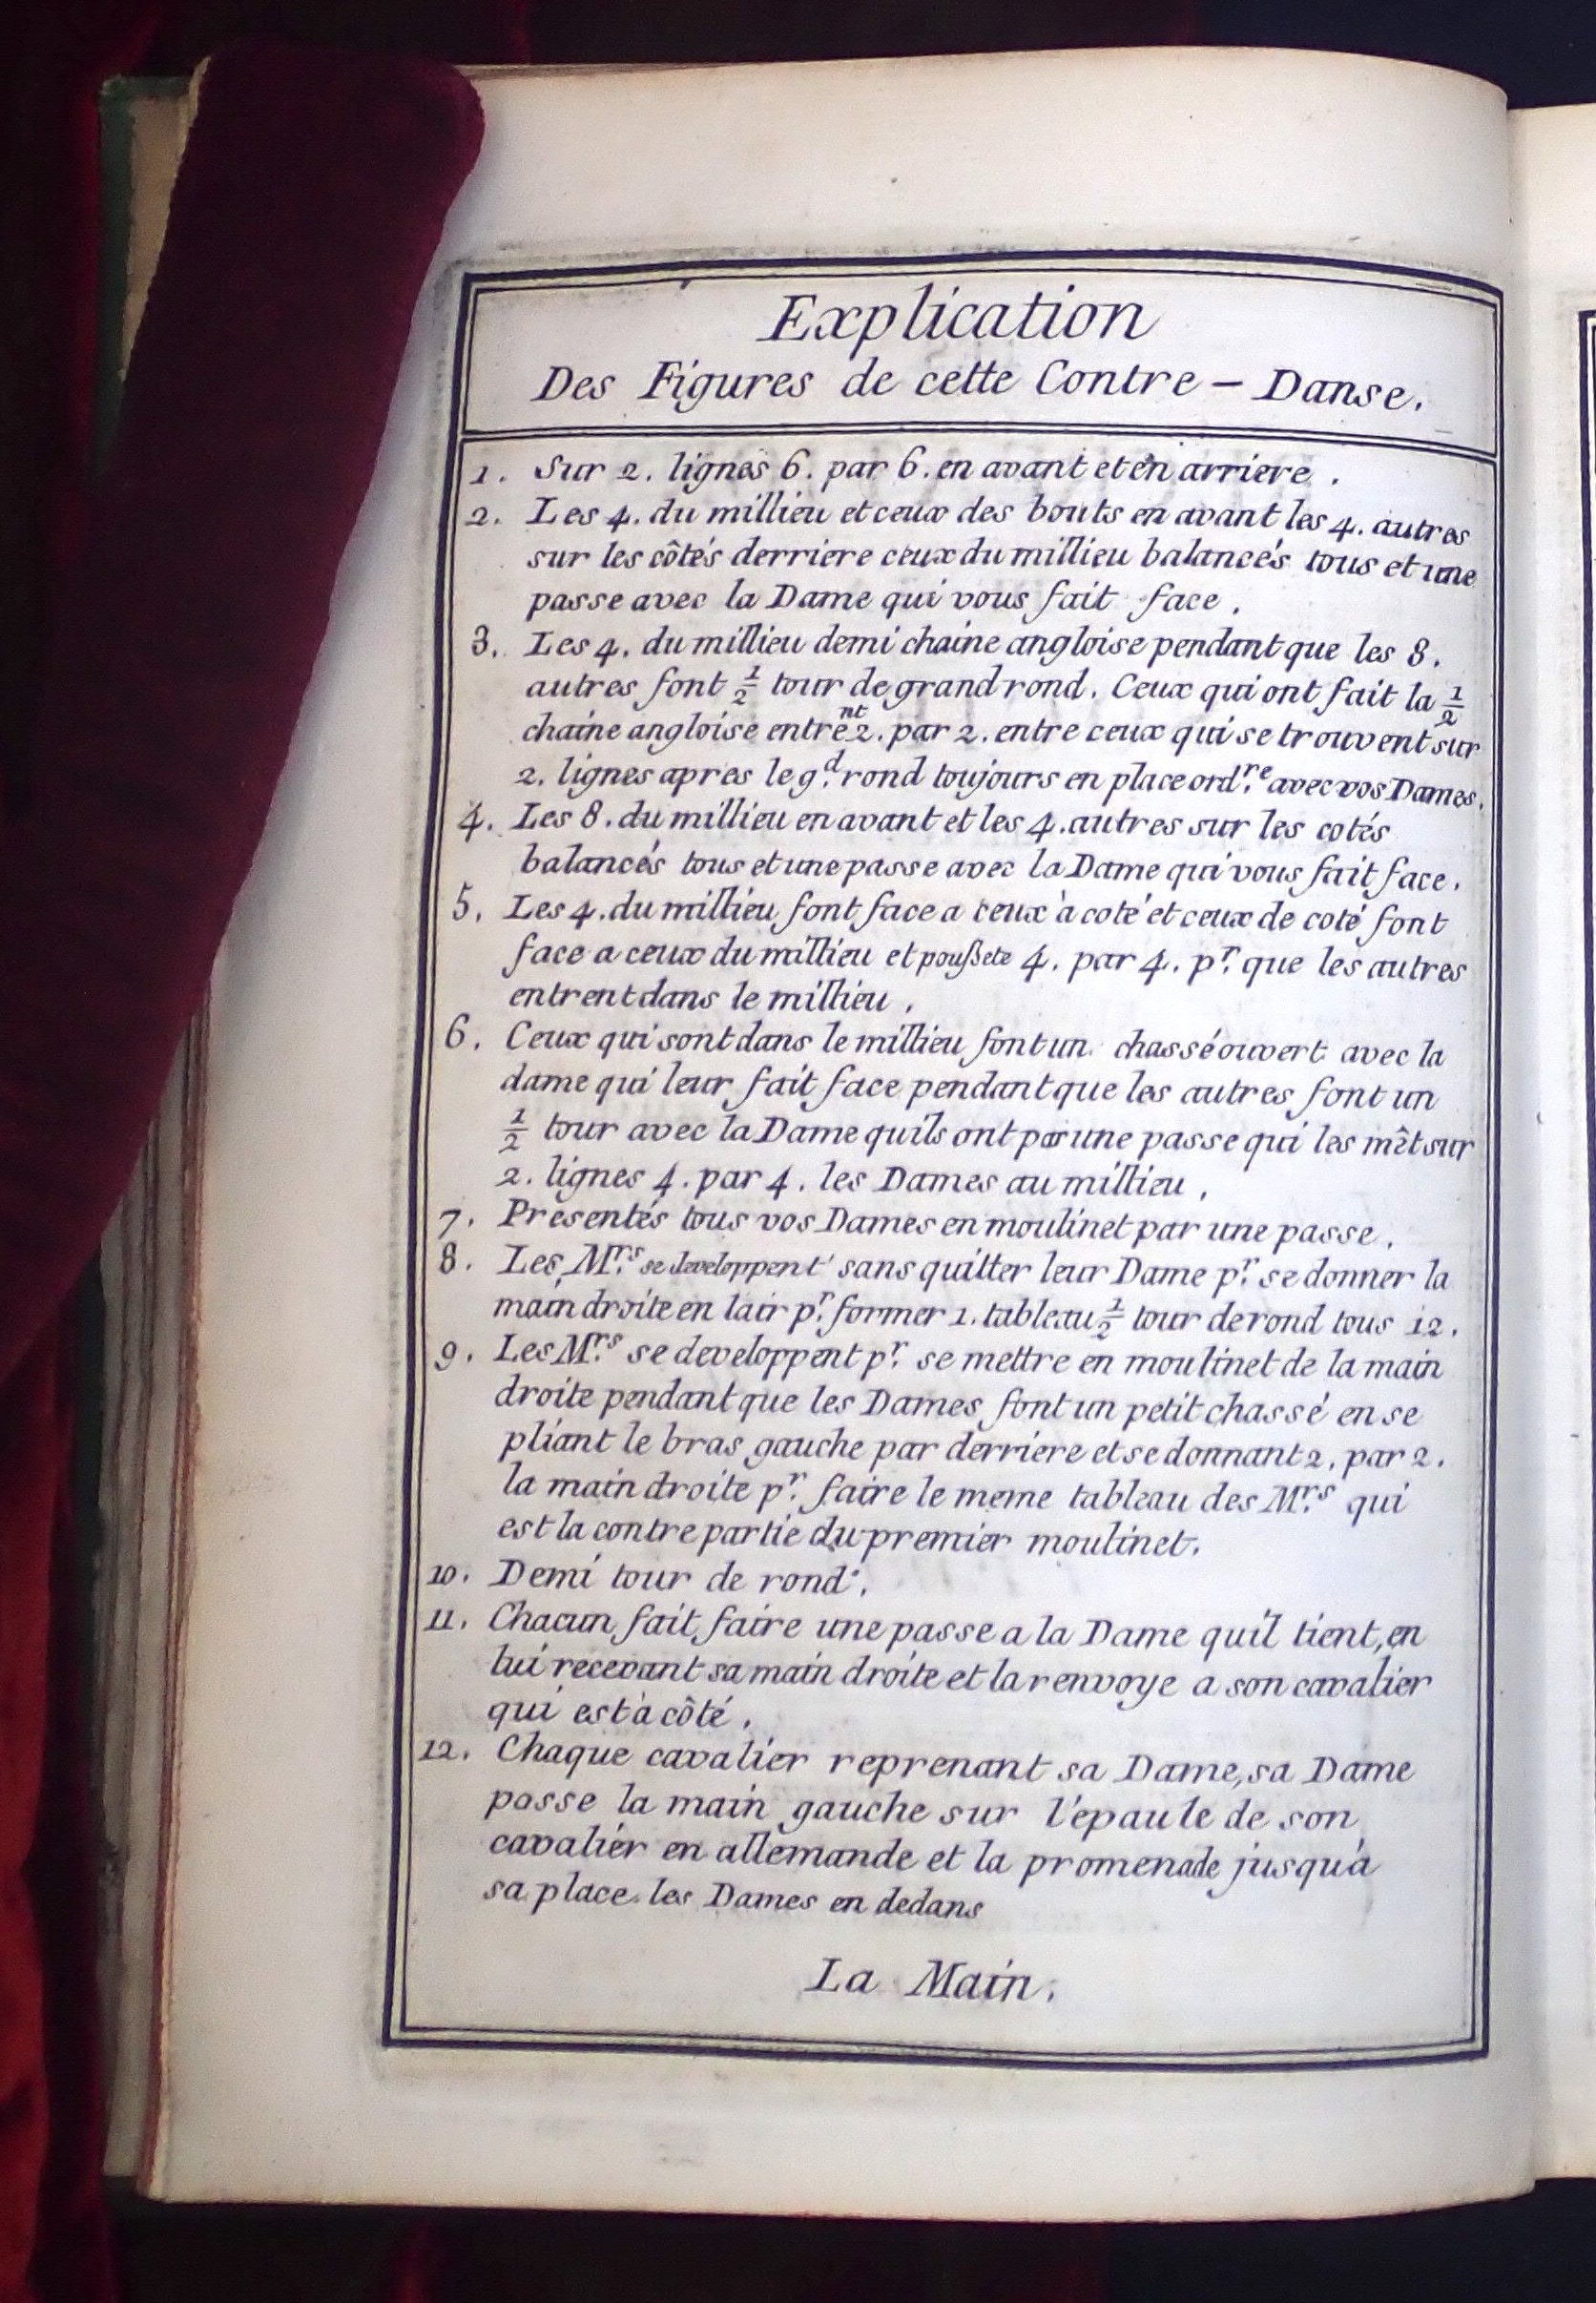 Explication
Des Figures de cette Contre - Danse.
1. Sur 2. lignes 6. par 6. en avant et en arriere.
2. Les 4. du millieu et ceux des bouts en avant les 4. autres
sur les côtés derriere ceux du millieu balancés tous et une
passe avec la Dame qui vous fait face.
3. Les 4. du millieu demi chaine angloise pendant que les 8.
autres font ½ tour de grand rond. Ceux qui ont fait la ½
chaine angloise entrent 2. par 2. entre ceux qui se trouvent sur
2. lignes apres le gd. rond toujours en place ordre. avec vos Dames.
4. Les 8. du millieu en avant et les 4. autres sur les cotés
balancés tous et une passe avec la Dame qui vous fait face.
5. Les 4. du millieu font face a ceux à coté et ceux de coté font
face a ceux du millieu et poußete 4. par 4. pr. que les autres
entrent dans le millieu.
6. Ceux qui sont dans le millieu font un chassé ouvert avec la
dame qui leur fait face pendant que les autres font un
½ tour avec la Dame quils ont par une passe qui les mêt sur
2. lignes 4. par 4. les Dames au millieu.
7. Presentés tous vos Dames en moulinet par une passe.
8. Les Mrs. se developpent sans quitter leur Dame pr. se donner la
main droite en lair pr. former 1. tableau ½ tour de rond tous 12.
9. Les Mrs. se developpent pr. se mettre en moulinet de la main
droite pendant que les Dames font un petit chassé en se
pliant le bras gauche par derriere et se donnant 2. par 2.
la main droite pr. faire le meme tableau des Mrs. qui
est la contre partie du premier moulinet.
10. Demi tour de rond.
11. Chacun fait faire une passe a la Dame qu'il tient, en
lui recevant sa main droite et la renvoye a son cavalier
qui est à côté.
12. Chaque cavalier reprenant sa Dame, sa Dame
passe la main gauche sur l'epaule de son
cavalier en allemande et la promenade jusqu'a
sa place les Dames en dedans
La Main.